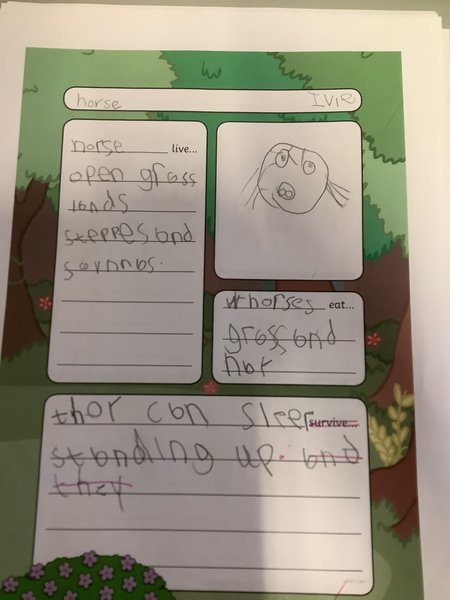 horse Ivie
horse live...
open grass
lands
steppes and
savnnas.
horses eat...
grass and
hay
thay can sleep survive...
standing up. and
they